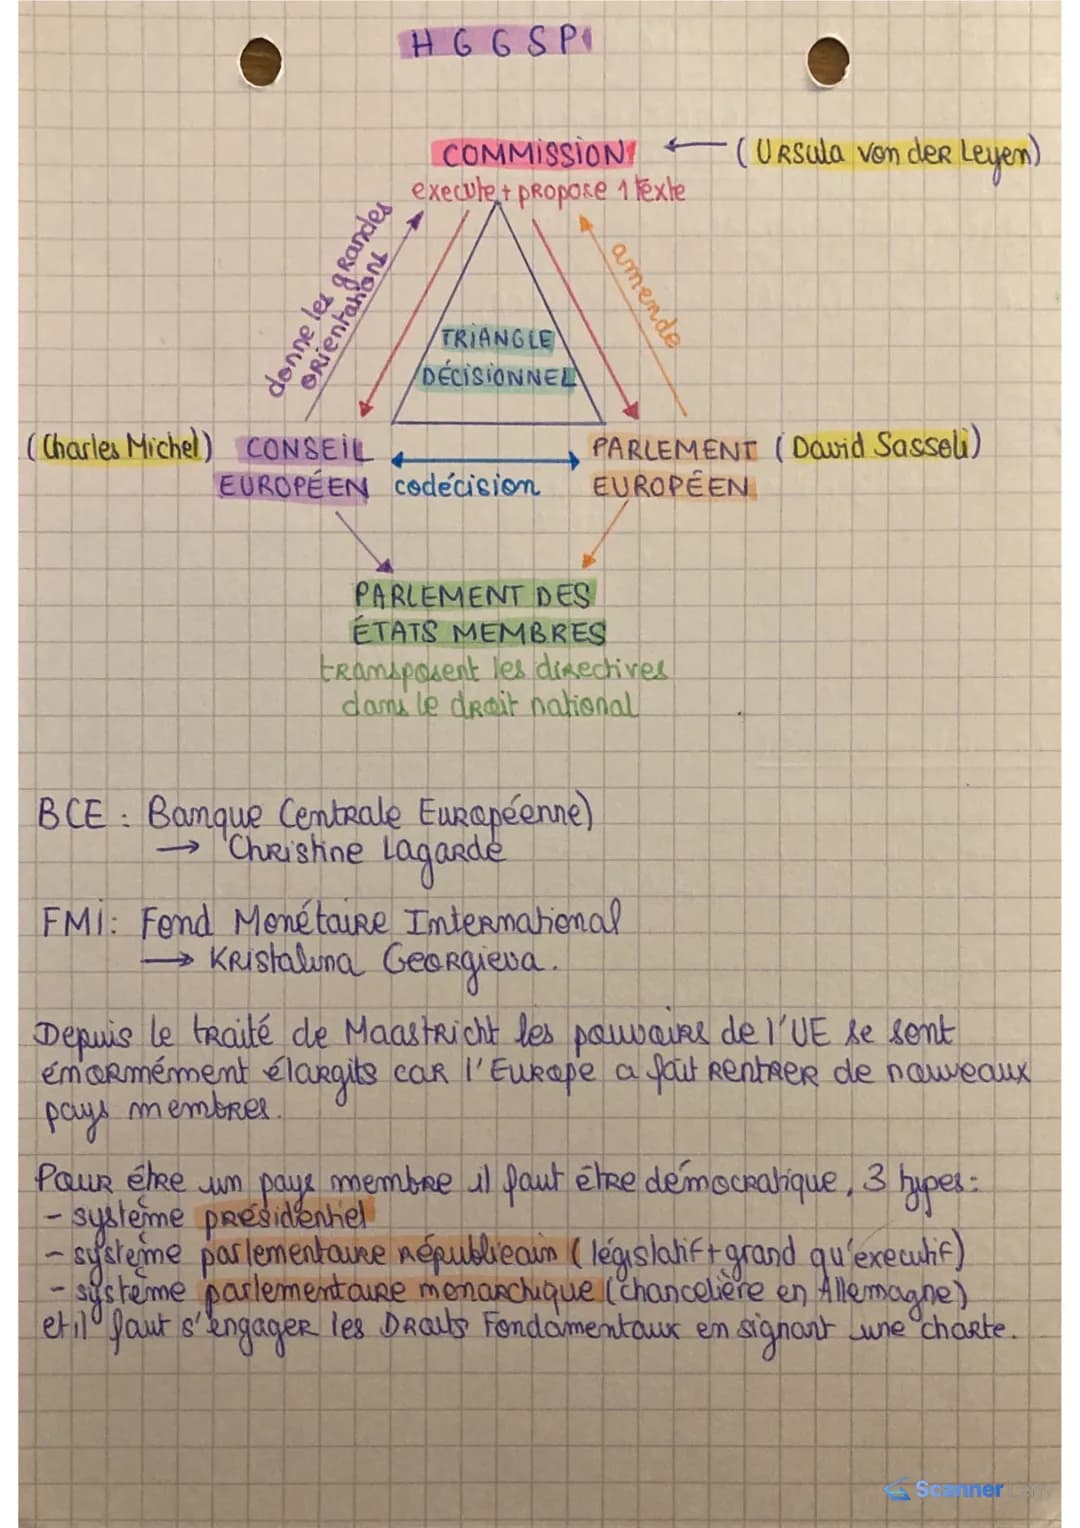 HGGSP
COMMISSION ← (Ursula von der Leyen)
execute + propose 1 texte
donne les grandes
orientations
amende
TRIANGLE
DÉCISIONNEL
(Charles Michel) CONSEIL
EUROPÉEN
codécision
PARLEMENT (David Sassoli)
EUROPÉEN
PARLEMENT DES
ÉTATS MEMBRES
transposent les directives
dans le droit national
BCE : Banque Centrale Européenne)
→ Christine Lagarde
FMI : Fond Monétaire International
→ Kristaluna Georgieva.
Depuis le traité de Maastricht les pouvoirs de l'UE se sont
énormément élargits car l'Europe a fait rentrer de nouveaux
pays membres.
Pour être un pays membre il faut être démocratique, 3 types :
- système présidentiel
- système parlementaire républicain (législatif + grand qu'executif)
- système parlementaire monarchique (chancelière en Allemagne)
et il faut s'engager les Droits Fondamentaux en signant une charte.
Scanner